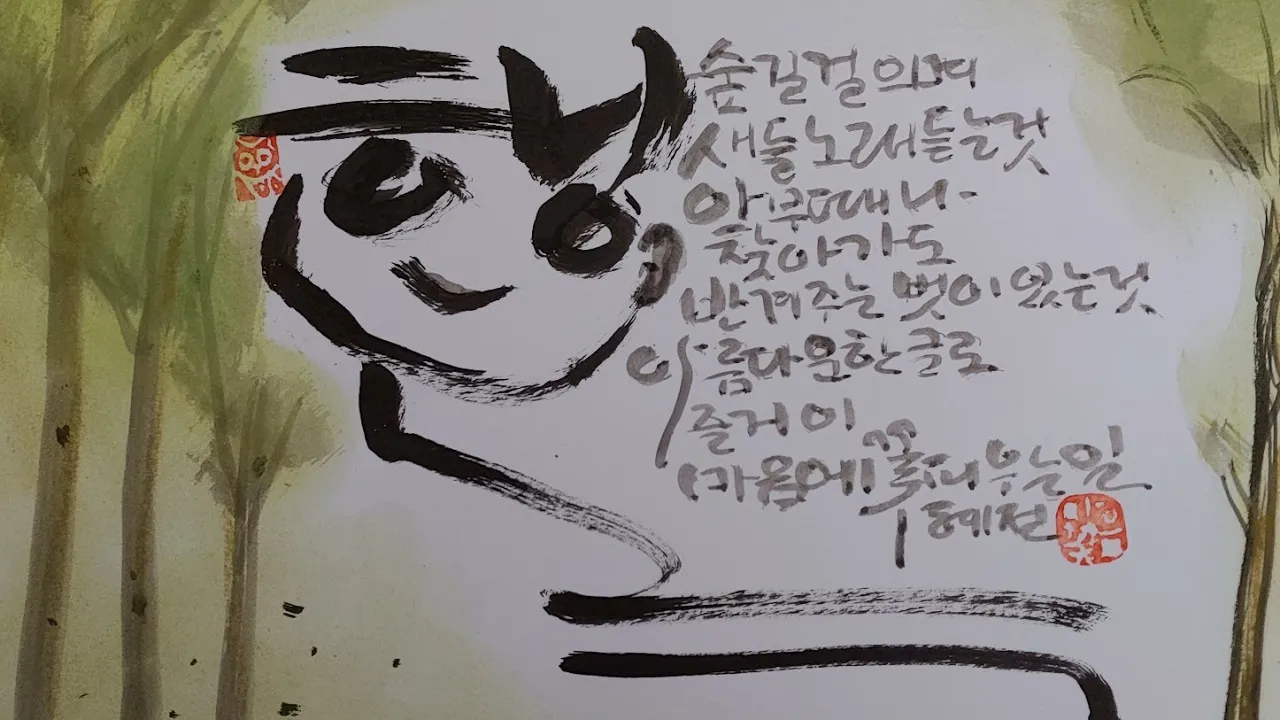 행복
숲길 걸으며
새들 노래 듣는 것
아무때나
찾아가도
반겨주는 벗이 있는 것
아름다운 한글로
즐거이
마음에 꽃 피우는 일
혜전